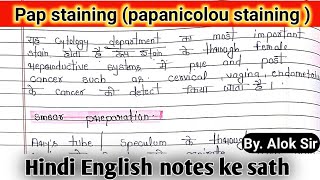 Pap staining (papanicolou staining)
यह cytology department का most important
stain होता है इस stain के through female
reproductive systems में pre and post
cancer such as : cervical, vagina, endometrial
के cancer को detect किया जाता है।
smear preparation
Ayre's tube | speculum के through
By. Alok Sir
Hindi English notes ke sath